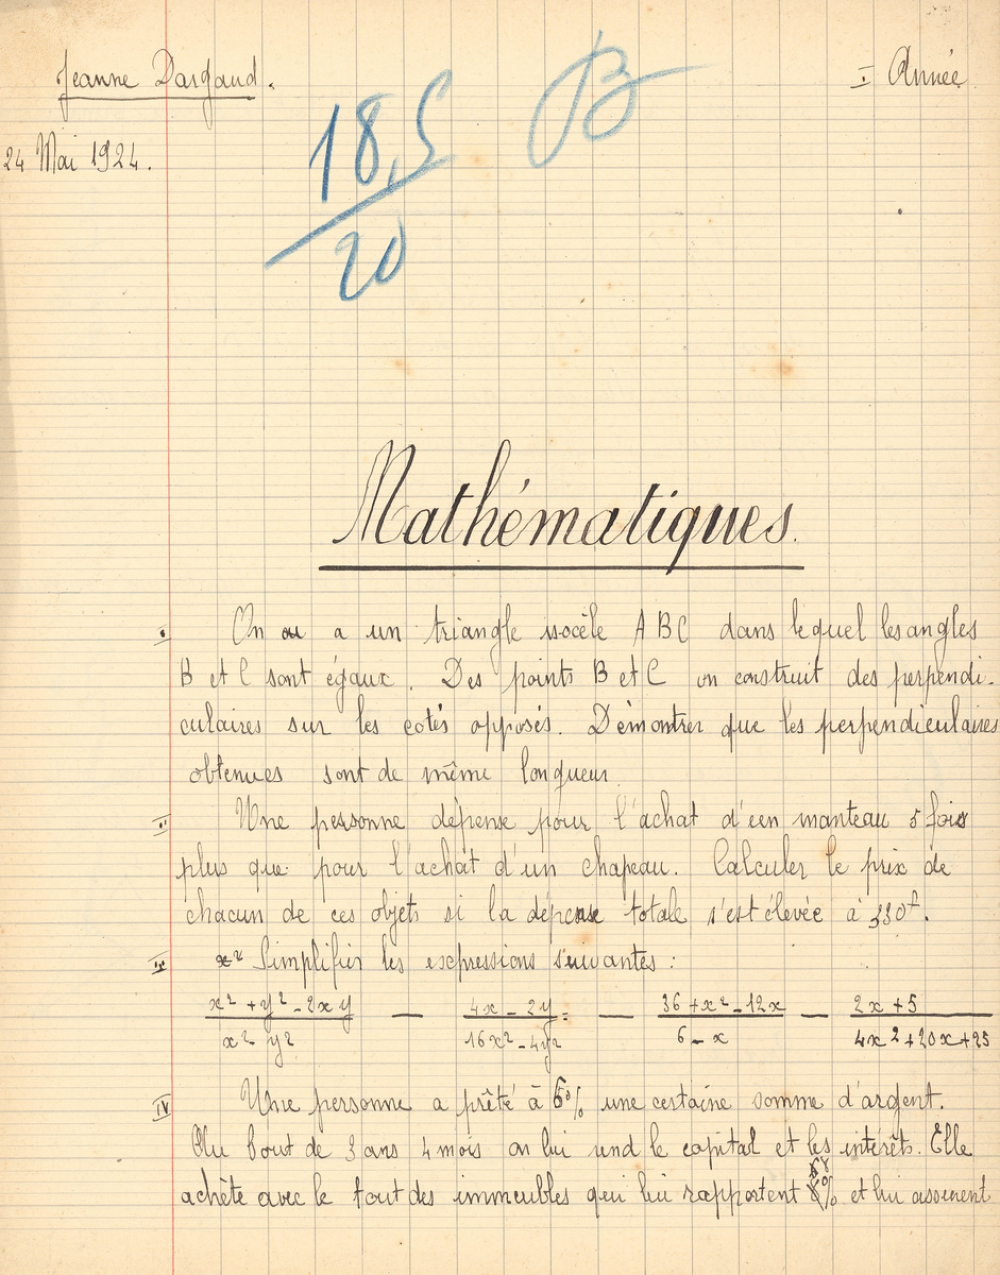 Jeanne Dargaud.
I Année
24 Mai 1924.
18,5
20
B
Mathématiques.
I On a un triangle isocèle ABC dans lequel les angles
B et C sont égaux. Des points B et C on construit des perpendi-
culaires sur les cotés opposés. Démontrer que les perpendiculaires
obtenues sont de même longueur
II Une personne dépense pour l'achat d'un manteau 5 fois
plus que pour l'achat d'un chapeau. Calculer le prix de
chacun de ces objets si la dépense totale s'est élevée à 330f.
Simplifier les expressions suivantes :
x² + y² - 2xy — 4x - 2y = — 36 + x² - 12x — 2x + 5
x² y² 16x² - 4y² 6 - x 4x² + 20x + 25
IV Une personne a prêté à 6% une certaine somme d'argent.
Au bout de 3 ans 4 mois on lui rend le capital et les intérêts. Elle
achète avec le tout des immeubles qui lui rapportent % et lui assurent